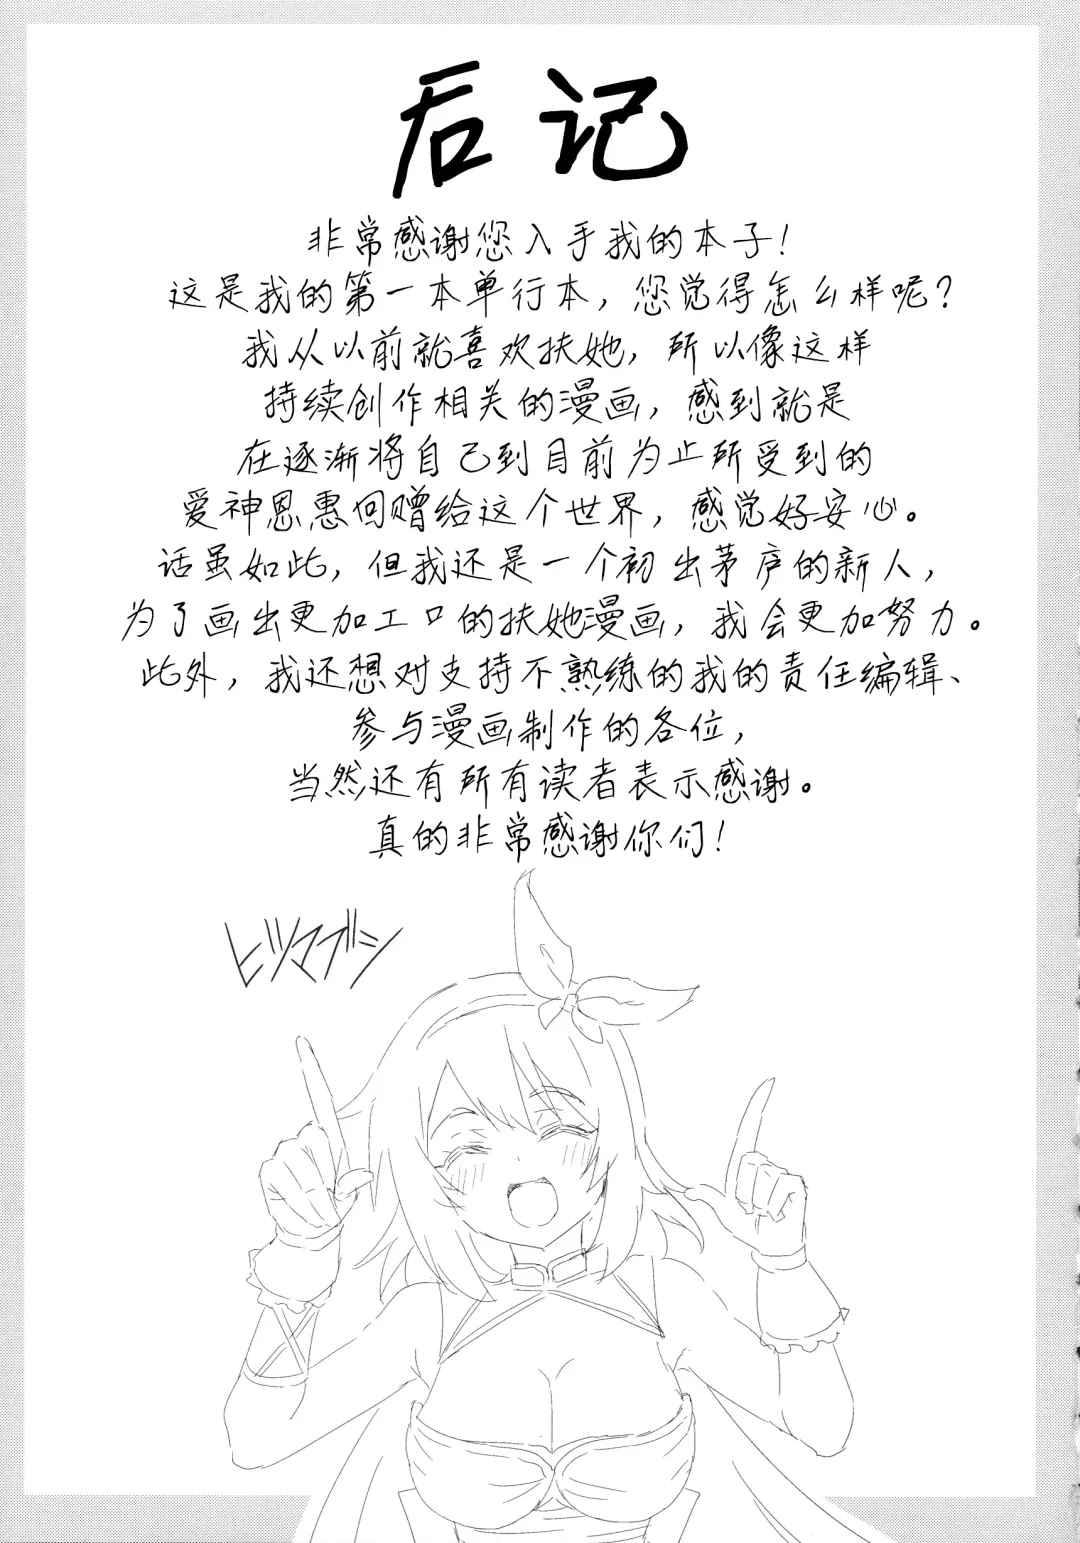 后记
非常感谢您入手我的本子！
这是我的第一本单行本，您觉得怎么样呢？
我从以前就喜欢扶她，所以像这样
持续创作相关的漫画，感到就是
在逐渐将自己到目前为止所受到的
爱神恩惠回赠给这个世界，感觉好安心。
话虽如此，但我还是一个初出茅庐的新人，
为了画出更加工口的扶她漫画，我会更加努力。
此外，我还想对支持不熟练的我的责任编辑、
参与漫画制作的各位，
当然还有所有读者表示感谢。
真的非常感谢你们！
ヒツマブシ